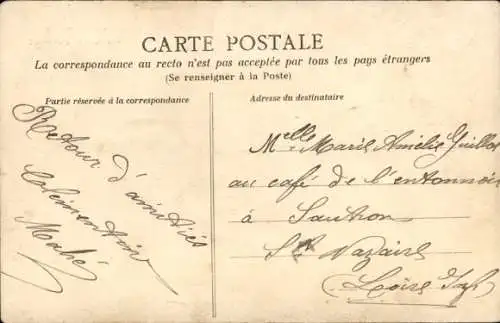 CARTE POSTALE
La correspondance au recto n'est pas acceptée par tous les pays étrangers
(Se renseigner à la Poste)
Partie réservée à la correspondance
Adresse du destinataire
Retour d'amitiés
Clémentine
Mahé
Melle Marie Amélie Guillot
au café de l'entonnoir
à Sautron
St Nazaire
(Loire Inf